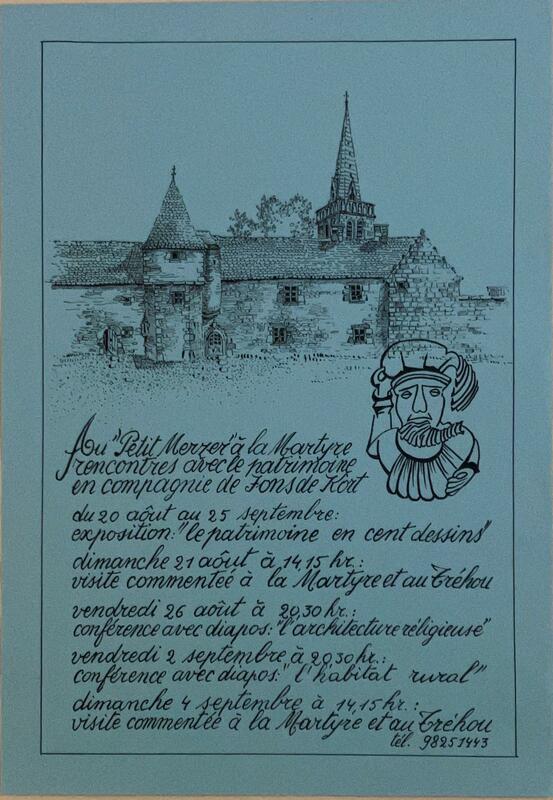 Au "Petit Merzer" à la Martyre
rencontres avec le patrimoine
en compagnie de Fons de Kort
du 20 aôut au 25 septembre:
exposition: "le patrimoine en cent dessins"
dimanche 21 aôut à 14,15 hr.:
visite commentée à la Martyre et au Tréhou
vendredi 26 août à 20,30 hr.:
conférence avec diapos: "l'architecture réligieuse"
vendredi 2 septembre à 20,30 hr.:
conférence avec diapos: "l'habitat rural"
dimanche 4 septembre à 14,15 hr.:
visite commentée à la Martyre et au Tréhou
tél. 98251443